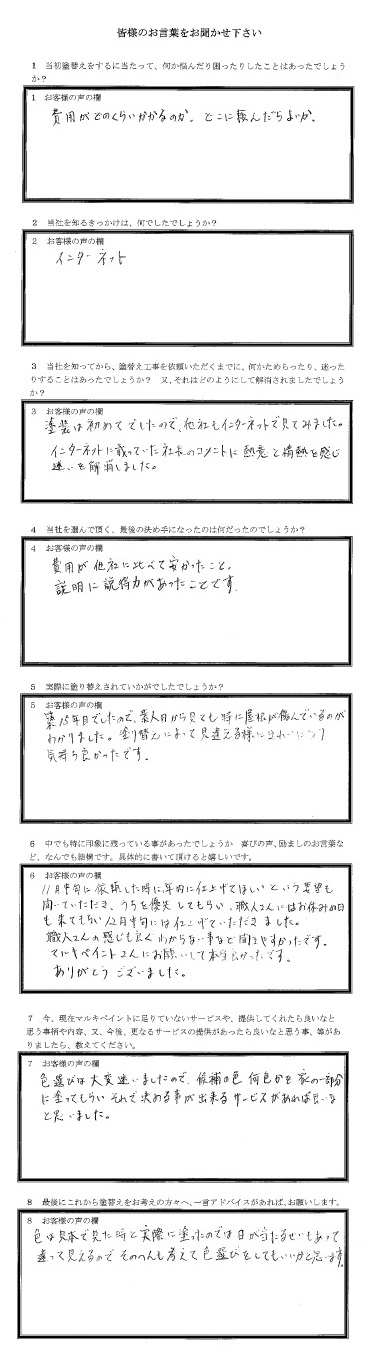 皆様のお言葉をお聞かせ下さい
1　当初塗替えをするに当たって、何か悩んだり困ったりしたことはあったでしょう
か？
1　お客様の声の欄
費用がどのくらいかかるのか。どこに頼んだらよいか。
2　当社を知るきっかけは、何でしたでしょうか？
2　お客様の声の欄
インターネット
3　当社を知ってから、塗替え工事を依頼いただくまでに、何かためらったり、迷った
りすることはあったでしょうか？　又、それはどのようにして解消されましたでしょう
か？
3　お客様の声の欄
塗装は初めてでしたので、他社もインターネットで見てみました。
インターネットに載っていた社長のコメントに熱意と情熱を感じ
迷いを解消しました。
4　当社を選んで頂く、最後の決め手になったのは何だったのでしょうか？
4　お客様の声の欄
費用が他社に比べて安かったこと。
説明に説得力があったことです。
5　実際に塗り替えされていかがでしたでしょうか？
5　お客様の声の欄
築15年目でしたので、素人目から見ても特に屋根が傷んでいるのが
わかりました。塗り替えによって見違える様にきれいになり
気持ち良かったです。
6　中でも特に印象に残っている事があったでしょうか　喜びの声、励ましのお言葉な
ど、なんでも結構です。具体的に書いて頂けると嬉しいです。
6　お客様の声の欄
11月中旬に依頼した時に年内に仕上げてほしいという要望も
聞いていただき、うちを優先してもらい、職人さんにはお休みの日
も来てもらい12月中旬には仕上げていただきました。
職人さんの感じも良くわからない事など聞きやすかったです。
マルキペイントさんにお願いして本当良かったです。
ありがとうございました。
7　今、現在マルキペイントに足りていないサービスや、提供してくれたら良いなと
思う事柄や内容、又、今後、更なるサービスの提供があったら良いなと思う事、等があ
りましたら、教えてください。
7　お客様の声の欄
色選びは大変迷いましたので、候補の色何色かを家の一部分
に塗ってもらいそれで決める事が出来るサービスがあれば良いな
と思いました。
8　最後にこれから塗替えをお考えの方々へ、一言アドバイスがあれば、お願いします。
8　お客様の声の欄
色は見本で見た時と実際に塗ったのでは日が当たるせいもあって
違って見えるのでそのへんも考えて色選びをしてもいいかと思います。